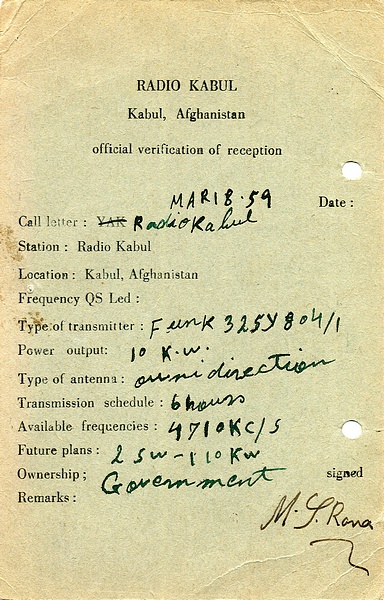 RADIO KABUL
Kabul, Afghanistan
official verification of reception
MAR18-59 Date :
Call letter : YAK Radio Kabul
Station : Radio Kabul
Location : Kabul, Afghanistan
Frequency QS Led :
Type of transmitter : Funk 325Y804/1
Power output: 10 K.W.
Type of antenna : omnidirection
Transmission schedule : 6 hours
Available frequencies : 4710KC/S
Future plans : 2 SW - 110 KW
Ownership ; Government signed
Remarks :
M. S. Rana